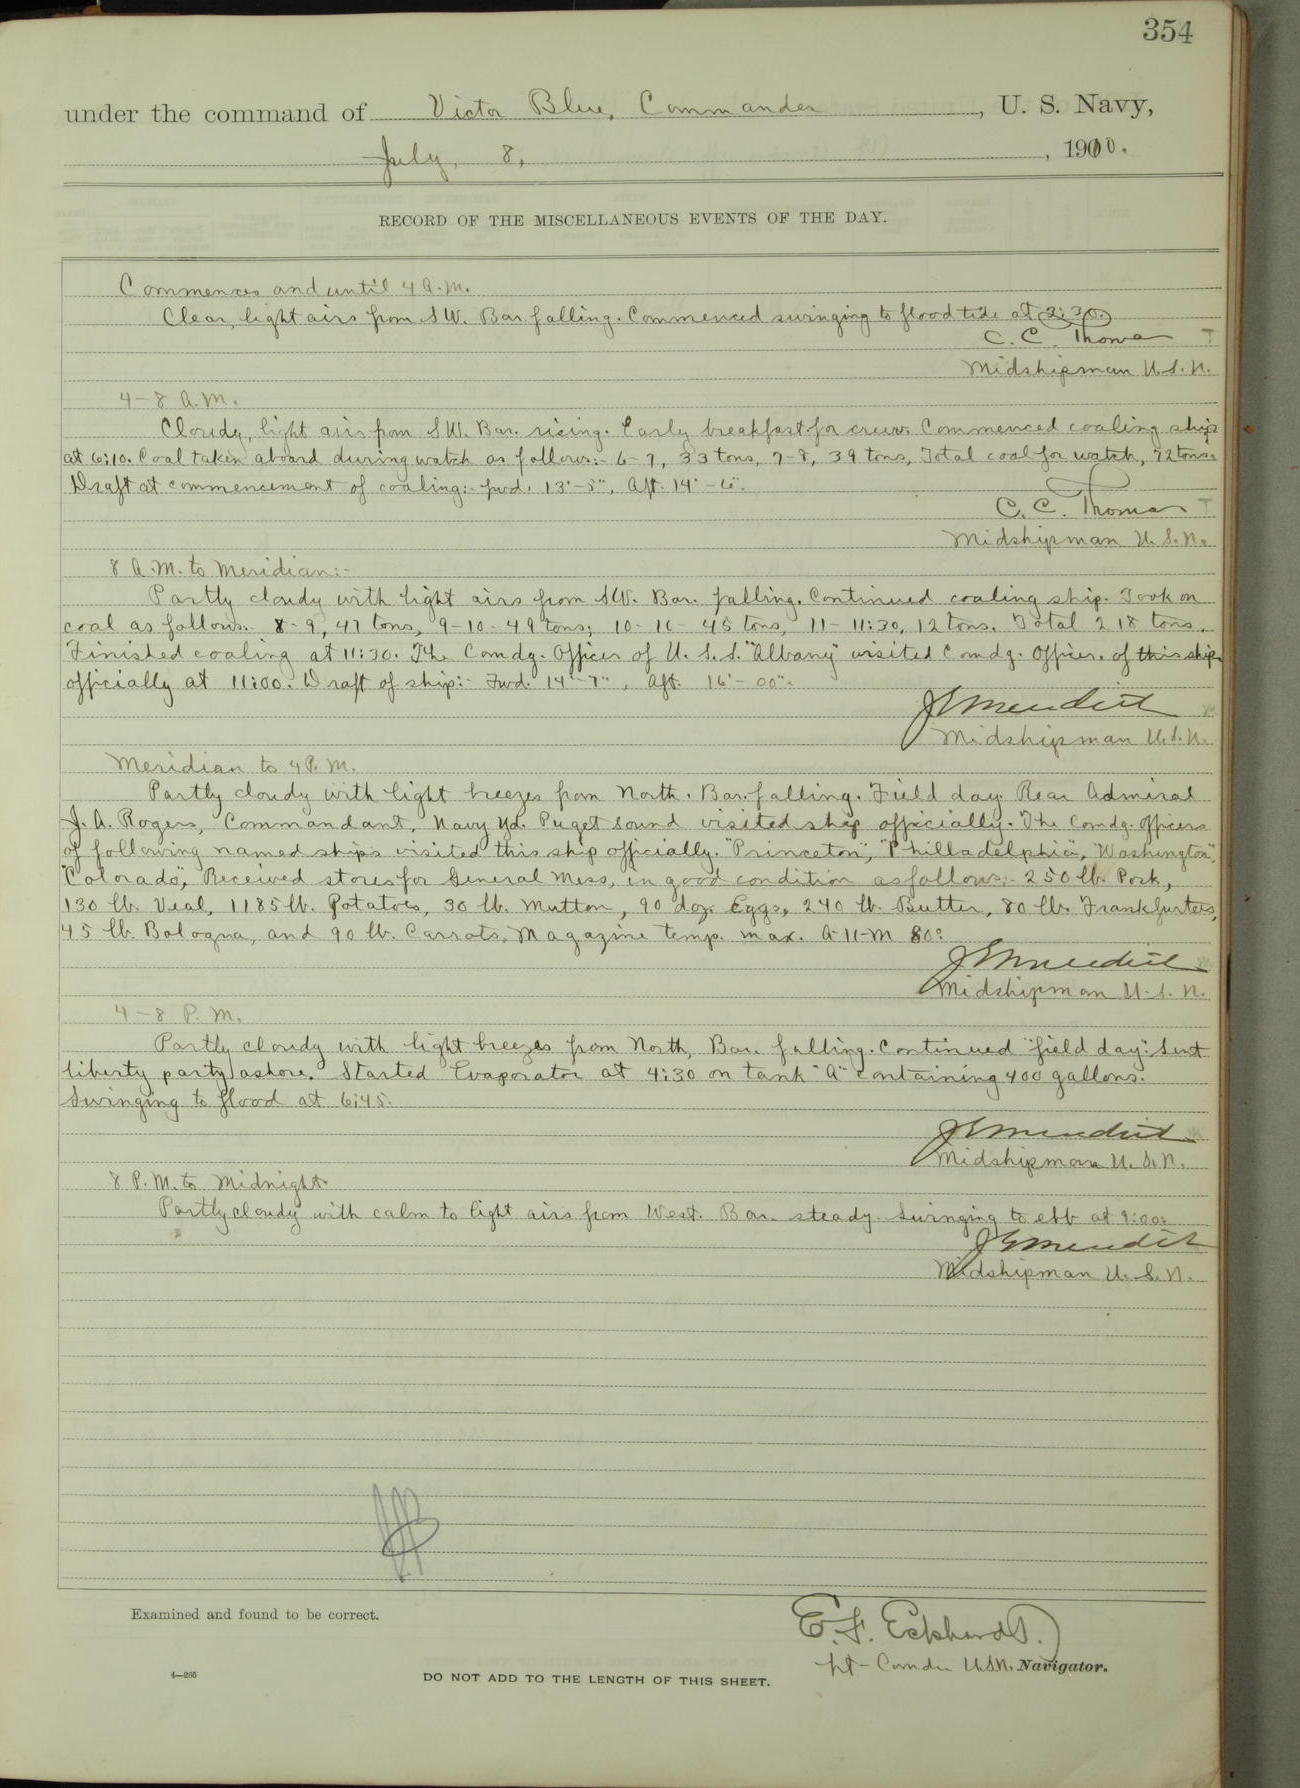 354
under the command of Victor Blue, Commander, U. S. Navy,
July, 8, 1910.
RECORD OF THE MISCELLANEOUS EVENTS OF THE DAY.
Commences and until 4 A.M.
Clear, light airs from SW. Bar. falling. Commenced swinging to flood tide at 2:30.
C. C. Thomas
Midshipman U.S.N.
4-8 A.M.
Cloudy, light airs from SW. Bar. rising. Early breakfast for crew. Commenced coaling ship
at 6:10. Coal taken aboard during watch as follows:- 6-7, 33 tons, 7-8, 39 tons, Total coal for watch, 72 tons.
Draft at commencement of coaling:- fwd. 13'-5", Aft. 14'-6".
C. C. Thomas
Midshipman U.S.N.
8 A.M. to Meridian:-
Partly cloudy with light airs from SW. Bar. falling. Continued coaling ship. Took on
coal as follows:- 8-9, 47 tons, 9-10- 49 tons; 10-11- 45 tons, 11-11:30, 12 tons. Total 218 tons.
Finished coaling at 11:30. The Comdg. Officer of U.S.S. "Albany" visited Comdg. Officer. of this ship
officially at 11:00. Draft of ship:- Fwd. 14'-7", Aft. 16'-00".
Midshipman U.S.N.
Meridian to 4 P.M.
Partly cloudy with light breezes from North. Bar. falling. Field day. Rear Admiral
J. A. Rogers, Commandant, Navy Yd. Puget Sound visited ship officially. The Comdg. Officers
of following named ships visited this ship officially. "Princeton", "Philladelphia", "Washington",
"Colorado", Received stores for General Mess, in good condition as follows:- 250 lb. Pork,
130 lb. Veal, 1185 lb. Potatoes, 30 lb. Mutton, 90 doz. Eggs, 240 lb. Butter, 80 lb. Frankfurters,
45 lb. Bologna, and 90 lb. Carrots. Magazine temp. max. A-11-M 80°
Midshipman U.S.N.
4-8 P.M.
Partly cloudy with light breezes from North, Bar. falling. Continued "field day". Sent
liberty party ashore. Started Evaporator at 4:30 on tank "A" containing 400 gallons.
Swinging to flood at 6:45.
Midshipman U.S.N.
8 P.M. to Midnight.
Partly cloudy with calm to light airs from West. Bar. steady. Swinging to ebb at 9:00.
Midshipman U.S.N.
Examined and found to be correct.
E. F. Eckhardt.
Lt-Comdr U.S.N. Navigator.
4—265
DO NOT ADD TO THE LENGTH OF THIS SHEET.